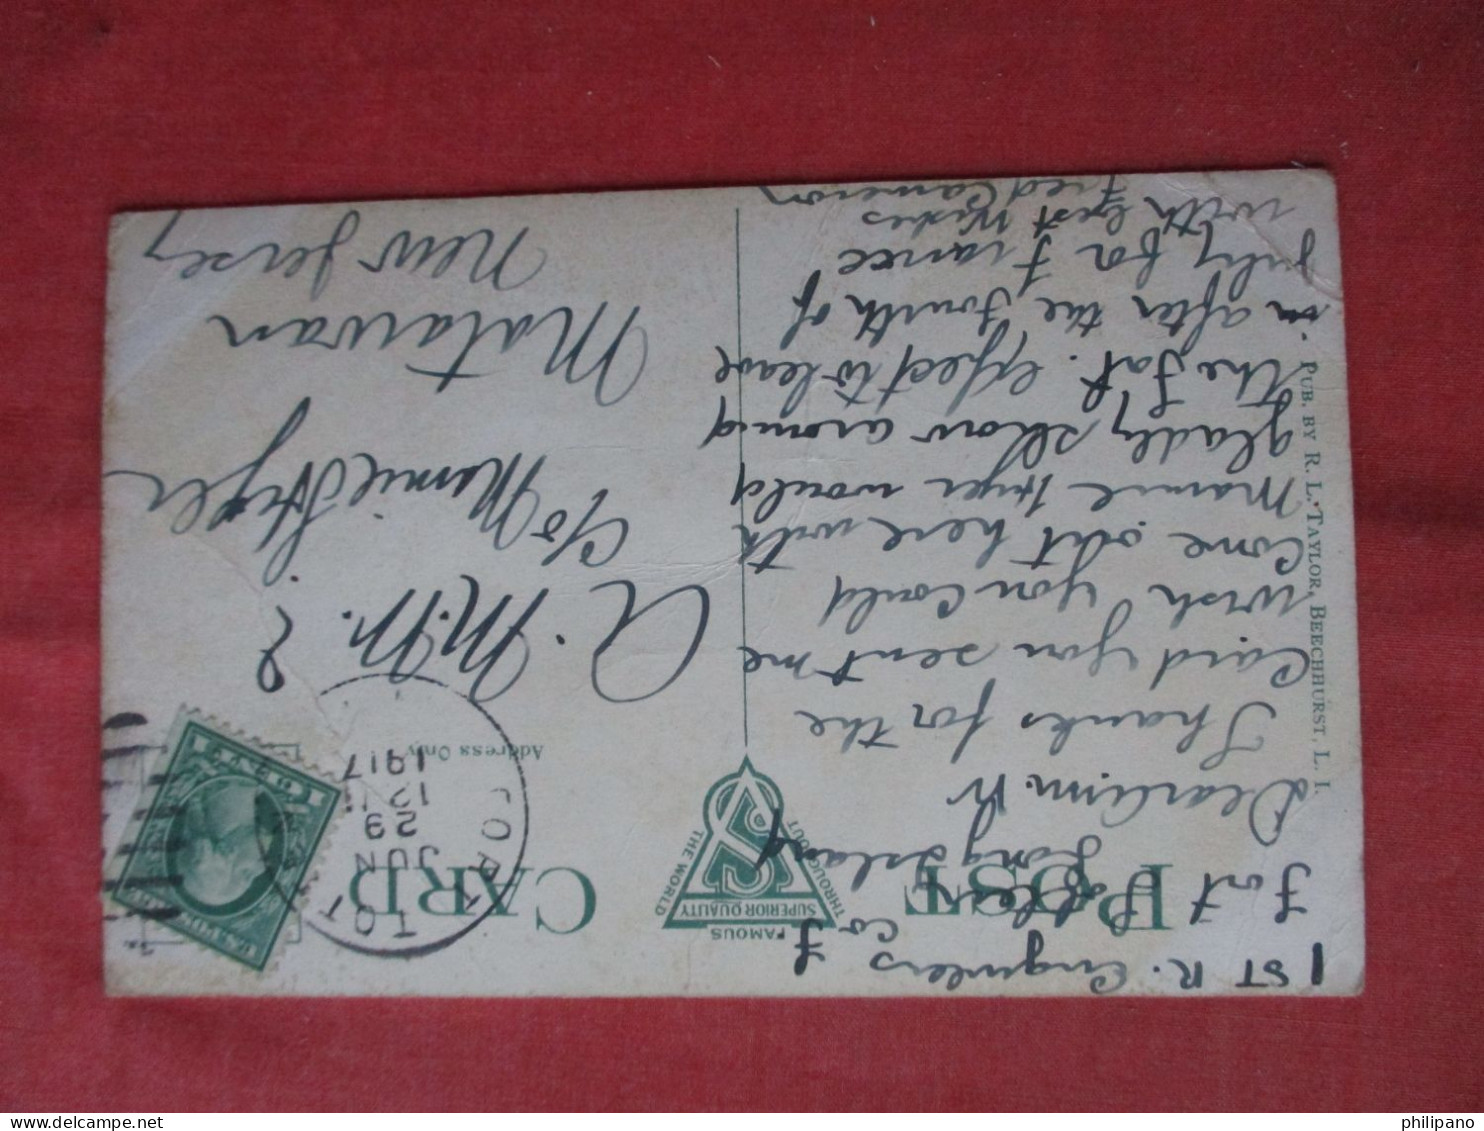 1ST R. Engineers Co F
Fort Totten
Long Island
POST CARD
FAMOUS
THROUGHOUT
THE WORLD
SUPERIOR QUALITY
Address Only
FORT TOT
JUN
29
12 M
1917
Thanks for the
Card you sent me
wish you could
Come out here with
Mamie Hyer would
gladly show around
the fort. expect to leave
in after the Fourth of
July for France
with best wishes
Fred Cameron
A. M. M. ?
c/o Mamie Hyer
Matawan
New Jersey
PUB. BY R. L. TAYLOR, BEECHHURST, L. I.
philipano